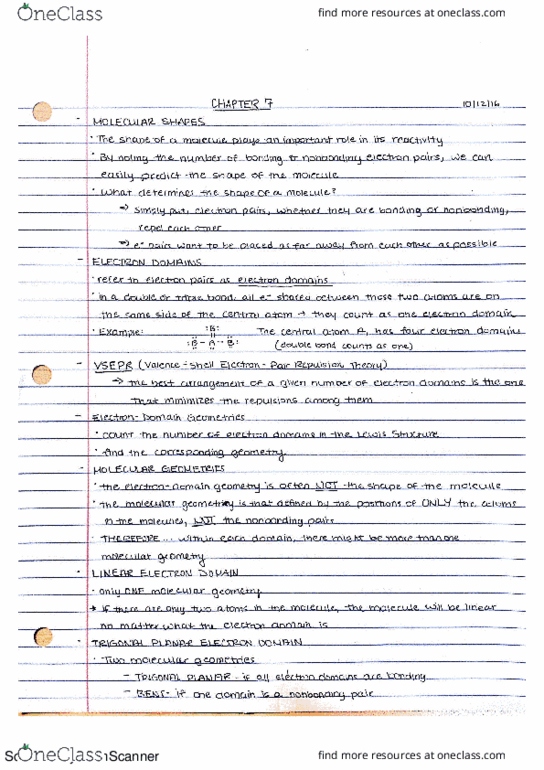 OneClass find more resources at oneclass.com
CHAPTER 7 10/12/16
- MOLECULAR SHAPES
• The shape of a molecule plays an important role in its reactivity
• By noting the number of bonding & nonbonding electron pairs, we can
easily predict the shape of the molecule
• What determines the shape of a molecule?
→ simply put, electron pairs, whether they are bonding or nonbonding,
repel each other
→ e⁻ pairs want to be placed as far away from each other as possible
- ELECTRON DOMAINS
• refer to electron pairs as electron domains
• In a double or triple bond, all e⁻ shared between those two atoms are on
the same side of the central atom → they count as one electron domain
• Example: :B: The central atom A, has four electron domains
:B - A - B: (double bond counts as one)
- VSEPR (Valence-Shell Electron-Pair Repulsion Theory)
→ the best arrangement of a given number of electron domains is the one
that minimizes the repulsions among them
- Electron-Domain Geometries
• count the number of electron domains in the Lewis Structure
• find the corresponding geometry
- MOLECULAR GEOMETRIES
• the electron-domain geometry is often NOT the shape of the molecule
• the molecular geometry is that defined by the positions of ONLY the
in the molecules, NOT the nonbonding pairs
• THEREFORE... within each domain, there might be more than one
molecular geometry
- LINEAR ELECTRON DOMAIN
• only ONE molecular geometry
* if there are only two atoms in the molecule, the molecule will be linear
no matter what the electron domain is
- TRIGONAL PLANAR ELECTRON DOMAIN
• Two molecular geometries
- TRIGONAL PLANAR - if all electron domains are bonding
- BENT - if one domain is a nonbonding pair
OneClass Scanner find more resources at oneclass.com